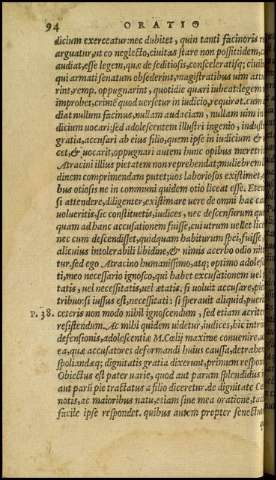 94 ORATIO
dicium exerceatur: nec dubitet, quin tanti facinoris r
arguatur, ut eo neglecto, ciuitas stare non possit: idem,
audiat, esse legem, quæ de seditiosis, consceleratisq; ciuib
qui armati senatum obsederint, magistratibus uim attu
rint, remp. oppugnarint, quotidie quæri iubeat: legem
improbet, crimē quod uersetur in iudicio, requirat. cum
diat nullum facinus, nullam audaciam, nullam uim in
dicium uocari: sed adolescentem illustri ingenio, indust
gratia, accusari ab eius filio, quem ipse in iudicium
cet, & uocarit, oppugnari autem hunc opibus meretri
Atracini illius pietatem non reprehendat: muliebrem
dinem comprimendam putet: uos laboriosos existimet,
bus otiosis ne in communi quidem otio liceat esse. Eten
si attendere, diligenter, existimare uere de omni hac ca
uolueritis: sic constituetis, iudices, nec descensurum qu
quam ad hanc accusationem fuisse, cui utrum uellet lic
nec cum descendisset, quidquam habiturum spei, fuiss
alicuius intolerabili libidine, & nimis acerbo odio nite
tur. sed ego Atracino humanissimo, atq; optimo adoles
ti, meo necessario ignosco, qui habet excusationem uel
tatis, uel necessitatis, uel ætatis. si uoluit accusare, pie
tribuo: si iussus est, necessitati: si sperauit aliquid, puer
P. 38. ceteris non modo nihil ignoscendum, sed etiam acrite
resistendum. Ac mihi quidem uidetur, iudices, hic intro
defensionis, adolescentiæ M. Cælij maxime conuenire, a
ea, quæ accusatores deformandi huius caussa, detrahen
spoliandæq; dignitatis gratia dixerunt, primum respon
Obiectus est pater uarie, quod aut parum splendidus
aut parū pie tractatus a filio diceretur. de dignitate Cæ
notis, ac maioribus natu, etiam sine mea oratione, tac
facile ipse respondet. quibus autem propter senectu